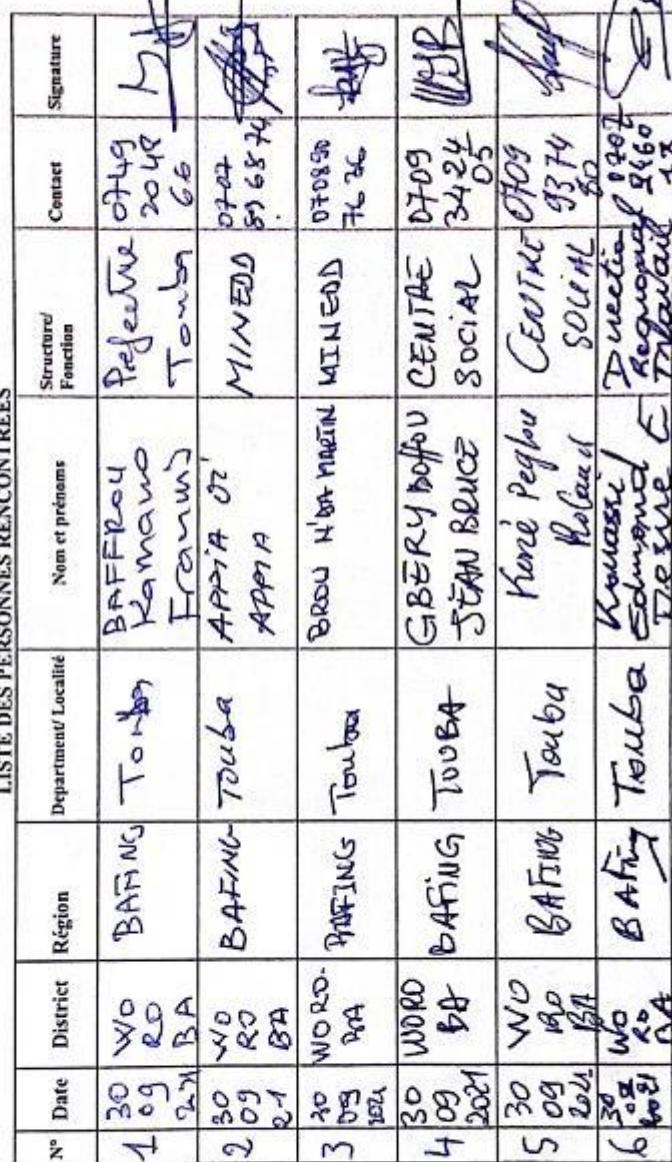 LISTE DES PERSONNES RENCONTREES
N° Date District Région Department/ Localité Nom et prénoms Structure/ Fonction Contact Signature
1 30 09 2021 WO RO BA BAFING Touba BAFFROU Kamano Francis Prefecture Touba 0749 2048 66
2 30 09 21 WO RO BA BAFING Touba APPIA APPIA MINEDD 0707 89 68 74
3 30 09 2021 WORO- BA BAFING Touba BROU N'DA MARTIN MINEDD 070890 76 76
4 30 09 2021 WORO BA BAFING TOUBA GBERY BOFFOU JEAN BRUCE CENTRE SOCIAL 0709 3424 05
5 30 09 2021 WO RO BA BAFING Touba Koné Roland CENTRE SOCIAL 0709 9374 80
6 30 2021 WO RO BA BAFING Touba Kouassi Edmond Direction 0707 2460